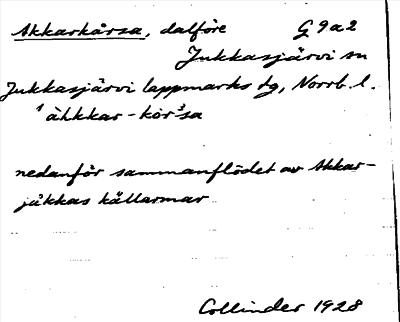 Akkarkårsa, dalföre G 9 a 2
Jukkasjärvi sn
Jukkasjärvi lappmarks tg, Norrb. l.
nedanför sammanflödet av Akkar-
jåkkas källarmar
Collinder 1928